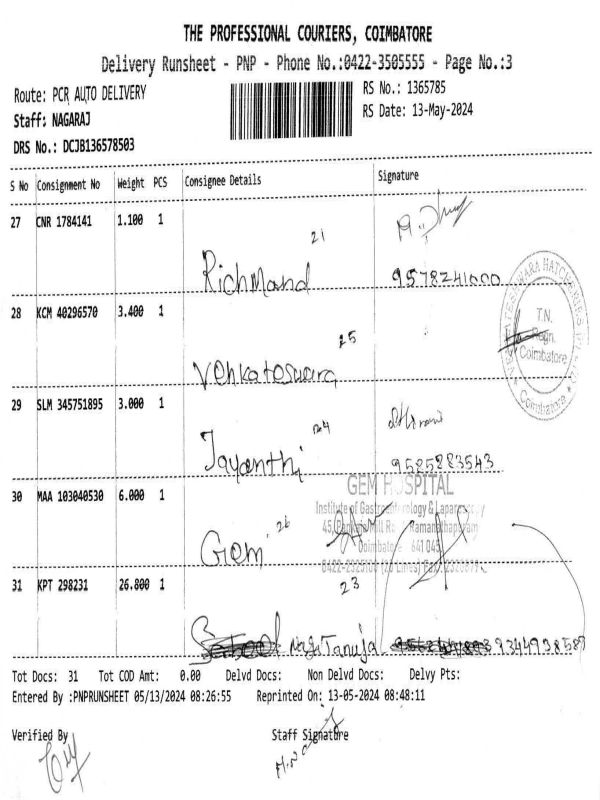 THE PROFESSIONAL COURIERS, COIMBATORE
Delivery Runsheet - PNP - Phone No.:0422-3505555 - Page No.:3
Route: PCR AUTO DELIVERY
RS No.: 1365785
Staff: NAGARAJ
RS Date: 13-May-2024
DRS No.: DCJB136578503
S No Consignment No Weight PCS Consignee Details Signature
27 CNR 1784141 1.100 1
21
Richmand 9578241000
28 KCM 40296570 3.400 1
T.N.
Regn.
Coimbatore
Coimbatore
25
Venkateswara
29 SLM 345751895 3.000 1
Jayanthi 9525283543
GEM HOSPITAL
30 MAA 103040530 6.000 1
Institute of Gastroenterology &
26
Gem
45, Pankaja Mill Ramanathapuram
Coimbatore 641 045
31 KPT 298231 26.800 1
23
Naga Tanuja 9344938587
Tot Docs: 31 Tot COD Amt: 0.00 Delvd Docs: Non Delvd Docs: Delvy Pts:
Entered By :PNPRUNSHEET 05/13/2024 08:26:55 Reprinted On: 13-05-2024 08:48:11
Verified By Staff Signature